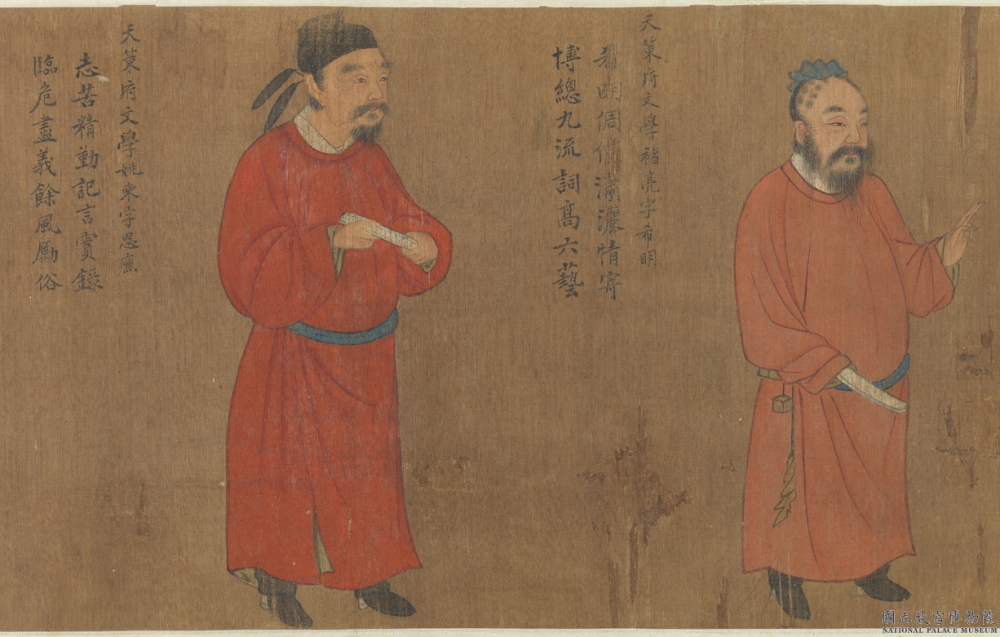 天策府文學褚亮字希明
希明倜儻瀟灑情寄
博總九流詞高六藝
天策府文學姚柬字思廉
志苦精勤記言實錄
臨危盡義餘風勵俗
國立故宮博物院
NATIONAL PALACE MUSEUM